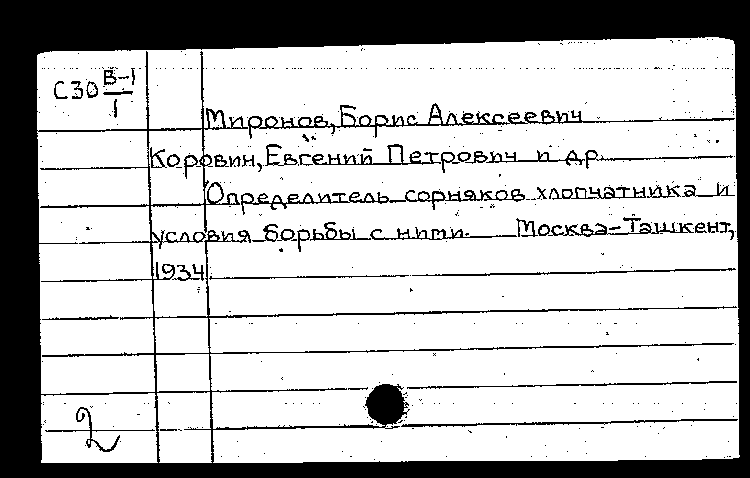 С30 В-1/1
Миронов, Борис Алексеевич
Коровин, Евгений Петрович и др.
Определитель сорняков хлопчатника и
условия борьбы с ними. Москва-Ташкент,
1934.
2